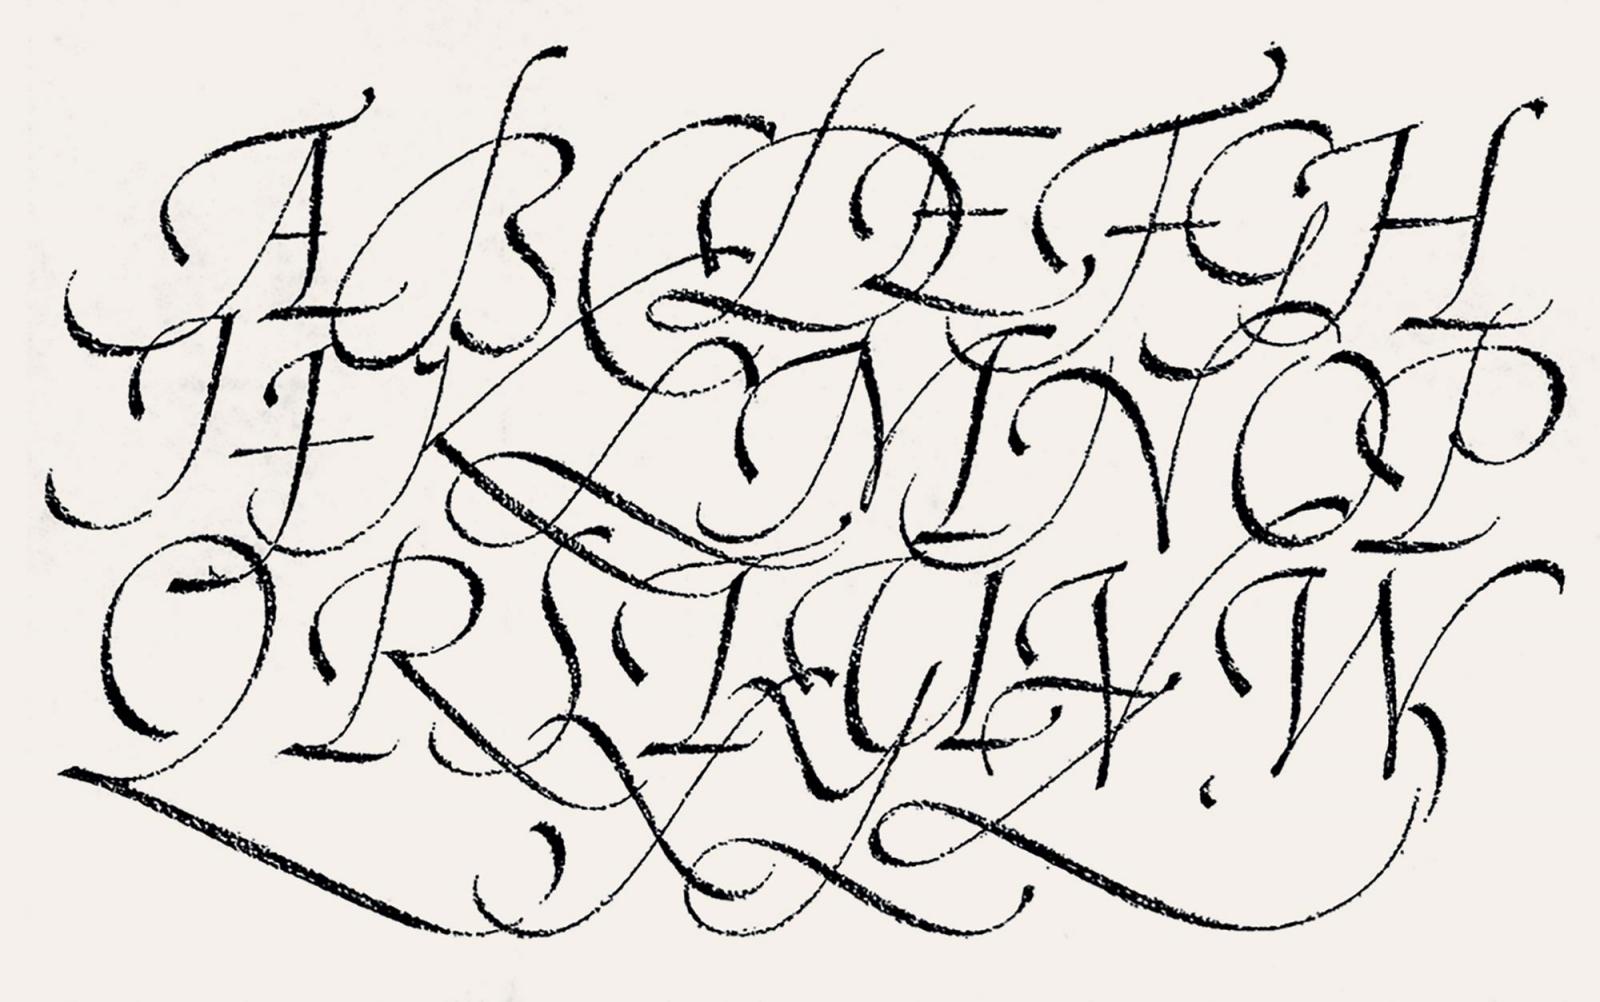 ABCDEFGH
IJKLMNOP
QRSTUVW
XYZ